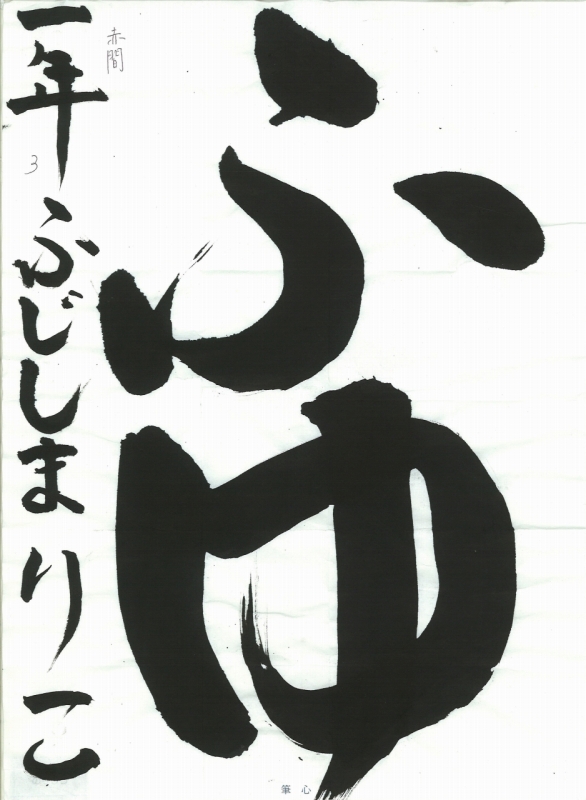 ふゆ
一年 ふじしまりこ
赤間
3
筆心